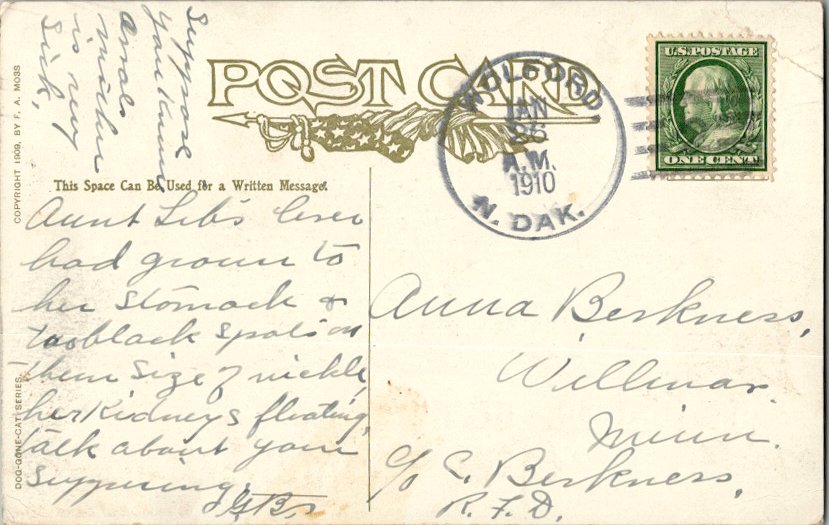 POST CARD
WOLFORD
JAN
26
A.M.
1910
N. DAK.
U.S. POSTAGE
ONE CENT
COPYRIGHT 1909, BY F. A. MOSS
DOG-GONE-CAT SERIES
This Space Can Be Used for a Written Message.
Suppose
you know
mother
is very
Sick,
Aunt Lib's liver
had grown to
her stomach &
too black spots on
them size of nickle,
her Kidneys floating,
talk about your
suffering.
G.B.
Anna Berkness,
Willmar
Minn.
c/o C. Berkness,
R. F. D.